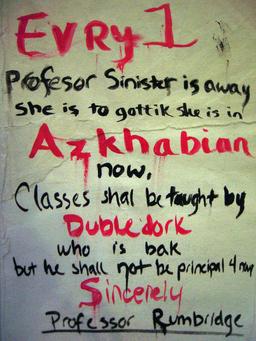 EVRy 1
Profesor Sinister is away
She is to gottik she is in
Azkhabian
now,
Classes shal be taught by
Dubledork
who is bak
but he shall not be principal 4 now
Sincerely
Professor Rumbridge